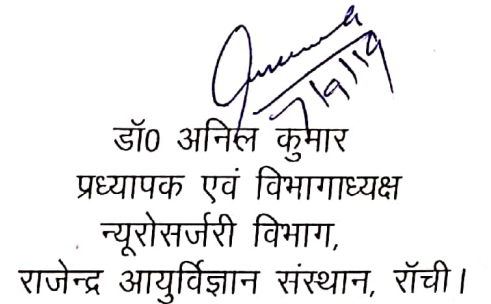 7/9/19
डॉ0 अनिल कुमार
प्रध्यापक एवं विभागाध्यक्ष
न्यूरोसर्जरी विभाग,
राजेन्द्र आयुर्विज्ञान संस्थान, रॉची।